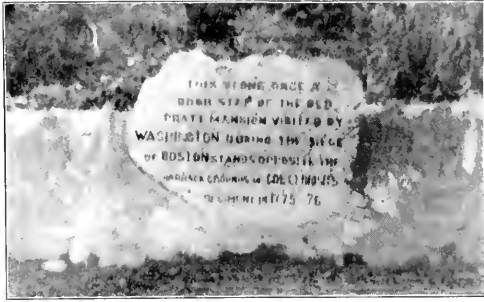 THIS STONE ONCE A
DOOR STEP OF THE OLD
PRATT MANSION VISITED BY
WASHINGTON DURING THE SIEGE
OF BOSTON STANDS OPPOSITE THE
GROUNDS OF
REGIMENT IN 1775 76